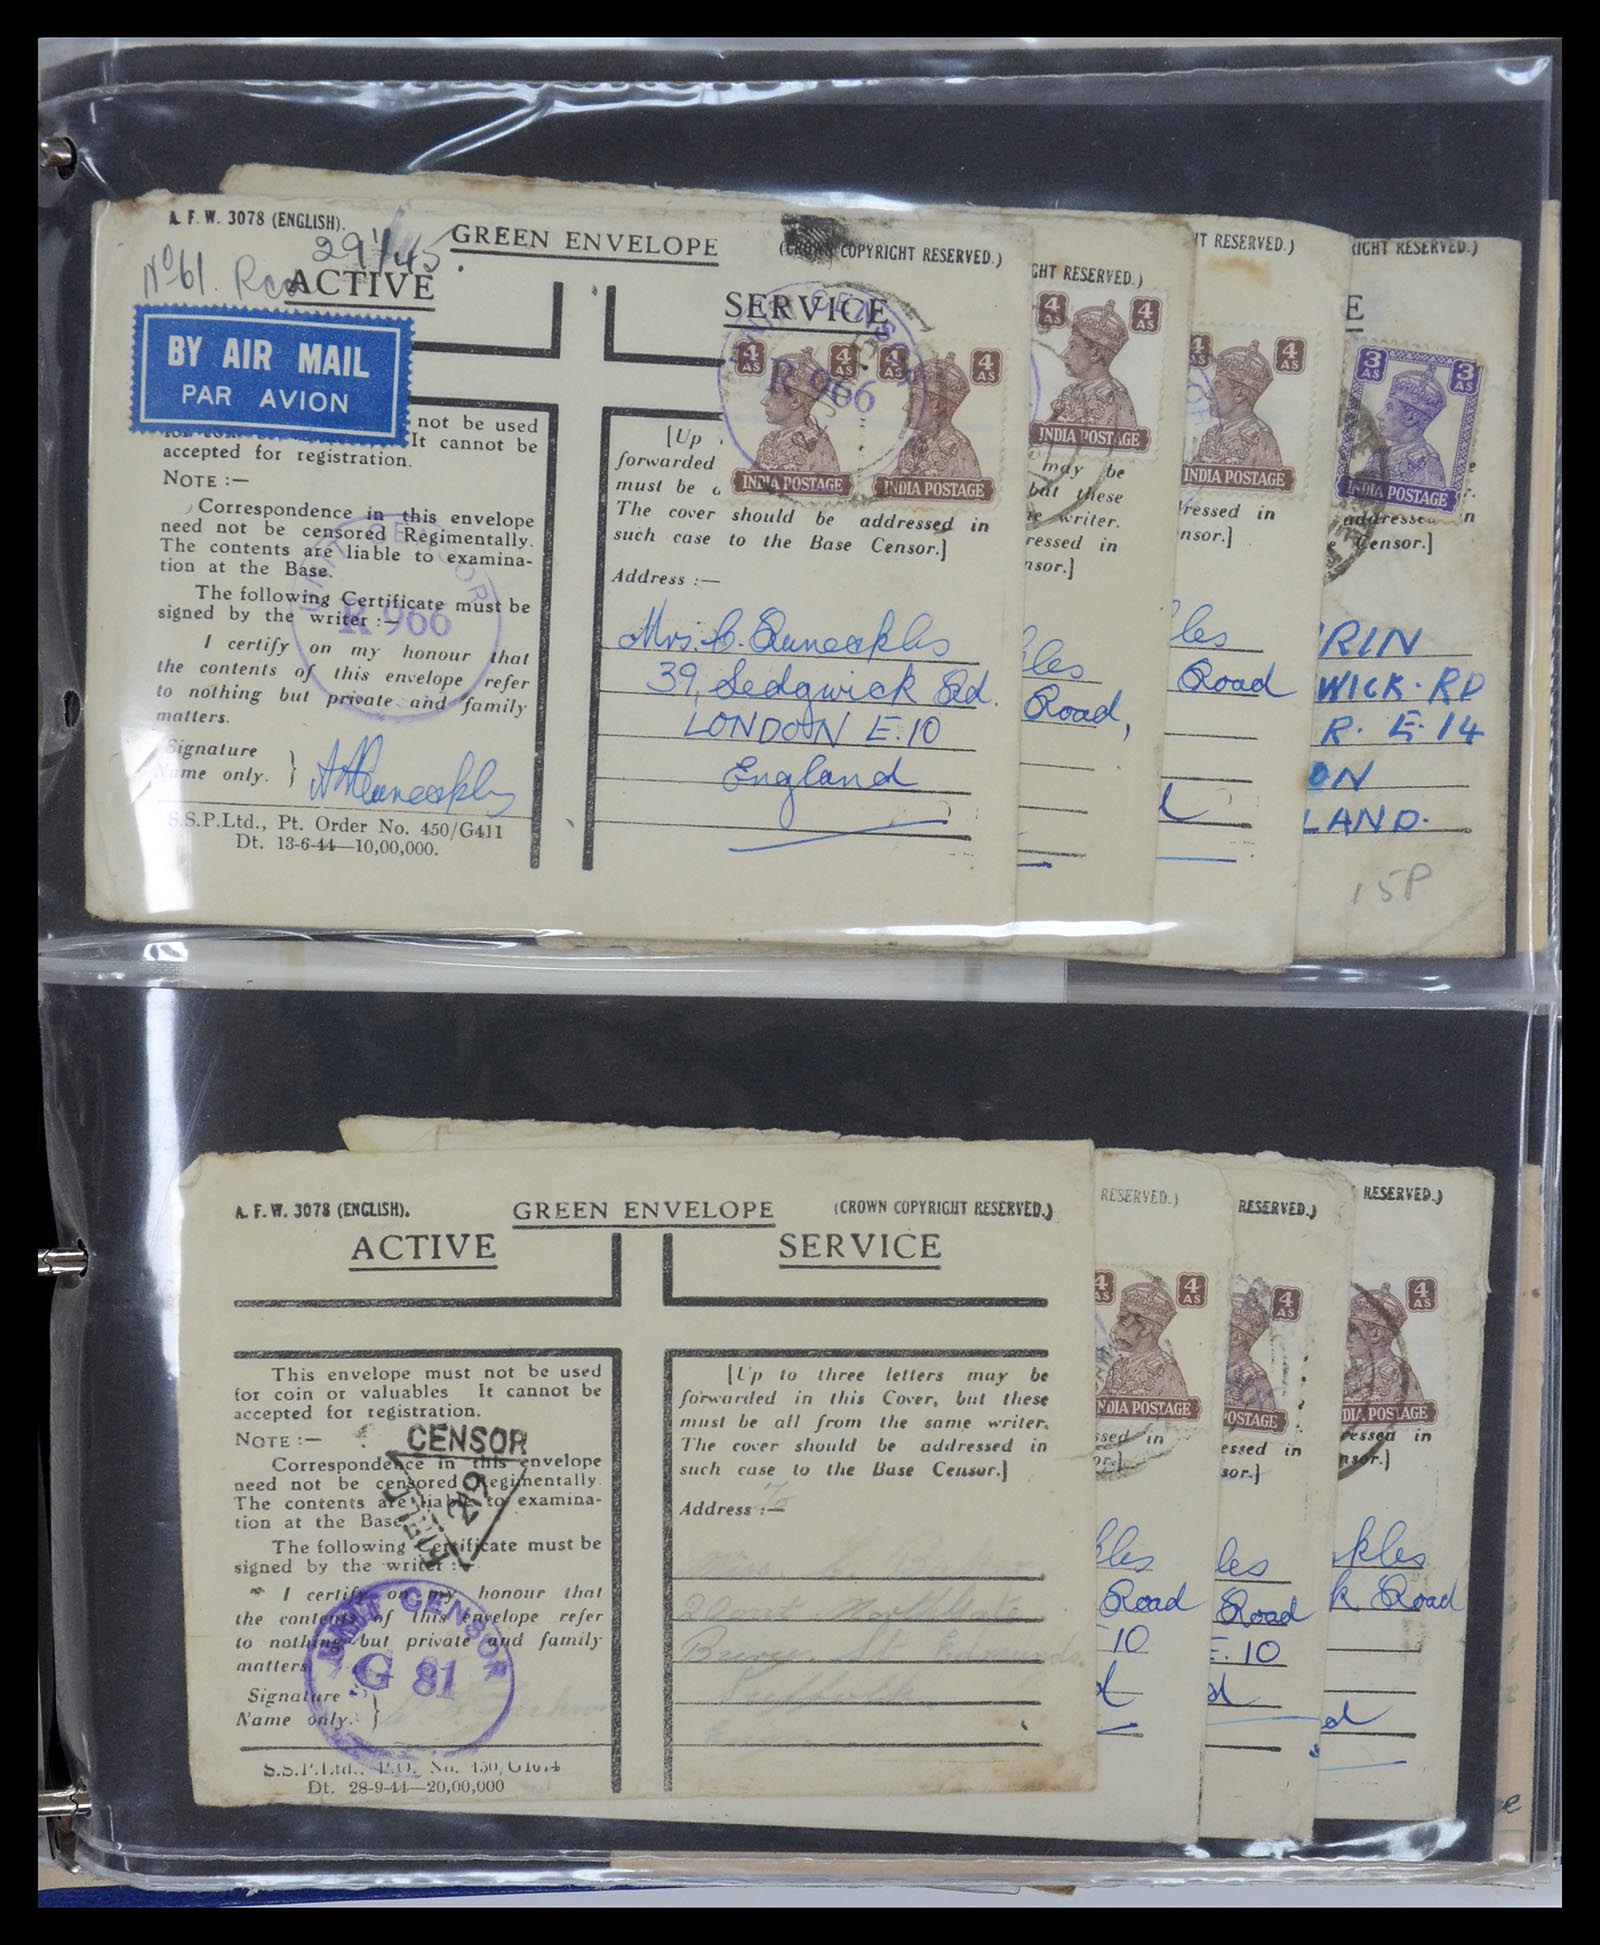 A. F. W. 3078 (ENGLISH).
GREEN ENVELOPE
(CROWN COPYRIGHT RESERVED.)
29/1/45.
Nº61.
ACTIVE
SERVICE
BY AIR MAIL
PAR AVION
not be used
It cannot be
accepted for registration.
NOTE :—
Correspondence in this envelope
need not be censored Regimentally.
The contents are liable to examina-
tion at the Base.
The following Certificate must be
signed by the writer :—
I certify on my honour that
the contents of this envelope refer
to nothing but private and family
matters.
Signature
Name only. }
S.S.P.Ltd., Pt. Order No. 450/G411
Dt. 13-6-44—10,00,000.
UNIT CENSOR
R 966
UNIT CENSOR
R 966
4 AS 4 AS
INDIA POSTAGE
4 AS 4 AS
INDIA POSTAGE
[Up
forwarded
must be
The cover should be addressed in
such case to the Base Censor.]
Address :—
39, Sedgwick Rd.
LONDON E.10
England
GHT RESERVED.)
4 AS 4 AS
INDIA POSTAGE
may be
but these
writer.
ressed in
nsor.]
kles
Road,
HT RESERVED.)
4 AS
INDIA POSTAGE
ressed in
nsor.]
les
Road
RIGHT RESERVED.)
E
3 AS 3 AS
INDIA POSTAGE
addressed in
Censor.]
RIN
WICK. RD
R. E.14
ON
LAND.
15P
A. F. W. 3078 (ENGLISH).
GREEN ENVELOPE
(CROWN COPYRIGHT RESERVED.)
ACTIVE
SERVICE
This envelope must not be used
for coin or valuables It cannot be
accepted for registration.
NOTE :—
Correspondence in this envelope
need not be censored Regimentally.
The contents are liable to examina-
tion at the Base.
The following Certificate must be
signed by the writer :—
I certify on my honour that
the contents of this envelope refer
to nothing but private and family
matters.
Signature
Name only. }
S.S.P.Ltd., P.O. No. 450, G1674
Dt. 28-9-44—20,00,000
CENSOR
UNIT CENSOR
G 81
[Up to three letters may be
forwarded in this Cover, but these
must be all from the same writer.
The cover should be addressed in
such case to the Base Censor.]
Address :—
Miss
Bury St Edmunds.
Suffolk
RESERVED.)
4 AS 4 AS
INDIA POSTAGE
ssed in
kles
Road
10
d
RESERVED.)
4 AS
POSTAGE
essed in
sor.]
les
Road
E.10
d
RESERVED.)
4 AS
DIA POSTAGE
ressed in
nsor.]
kles
k Road
d